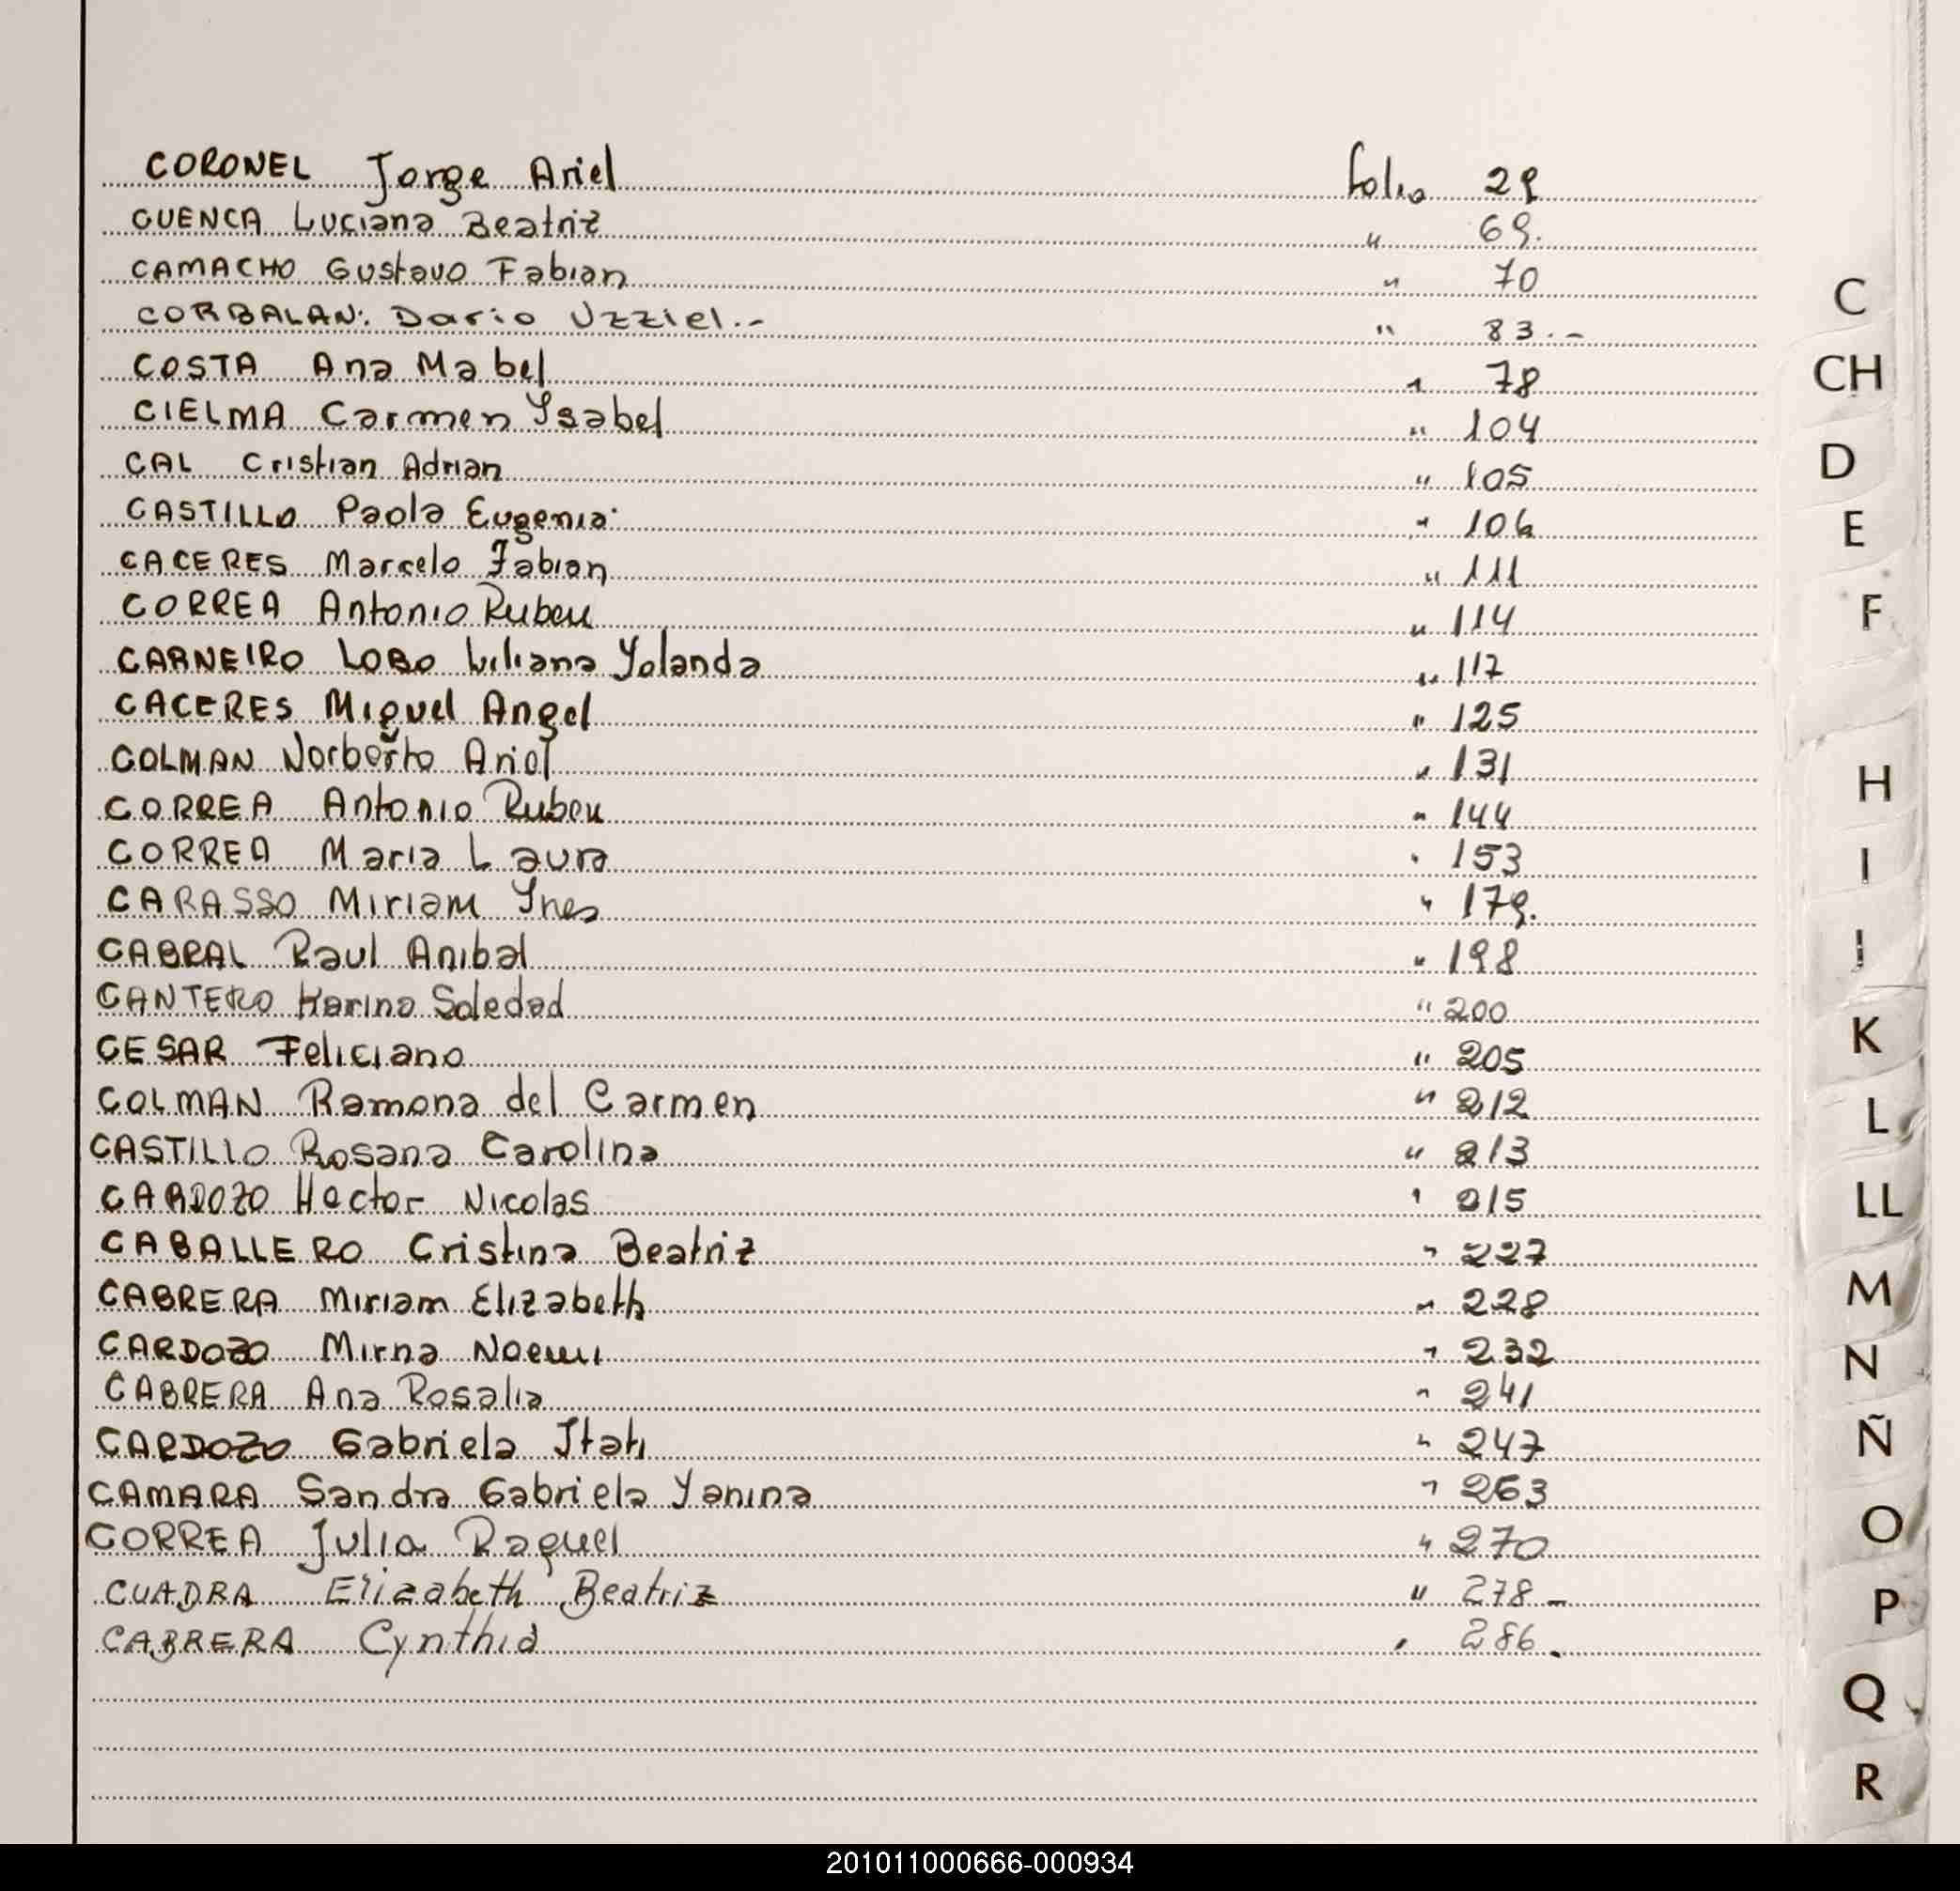 CORONEL Jorge Ariel folio 29
CUENCA Luciana Beatriz " 69.
CAMACHO Gustavo Fabian " 70
CORBALAN: Dario Uzziel.- " 83.-
COSTA Ana Mabel " 78
CIELMA Carmen Ysabel " 104
CAL Cristian Adrian " 105
CASTILLO Paola Eugenia " 106
CACERES Marcelo Fabian " 111
CORREA Antonio Ruben " 114
CARNEIRO LOBO Liliana Yolanda " 117
CACERES Miguel Angel " 125
COLMAN Norberto Ariel " 131
CORREA Antonio Ruben " 144
CORREA Maria Laura " 153
CARASSO Miriam Ynes " 179.
CABRAL Raul Anibal " 198
CANTERO Karina Soledad " 200
CESAR Feliciano " 205
COLMAN Ramona del Carmen " 212
CASTILLO Rosana Carolina " 213
CARDOZO Hector Nicolas " 215
CABALLERO Cristina Beatriz " 227
CABRERA Miriam Elizabeth " 228
CARDOZO Mirna Noemi " 232
CABRERA Ana Rosalia " 241
CARDOZO Gabriela Itati " 247
CAMARA Sandra Gabriela Yanina " 263
CORREA Julia Raquel " 270
CUADRA Elizabeth Beatriz " 278-
CABRERA Cynthia " 286.
C
CH
D
E
F
H
I
J
K
L
LL
M
N
Ñ
O
P
Q
R
201011000666-000934